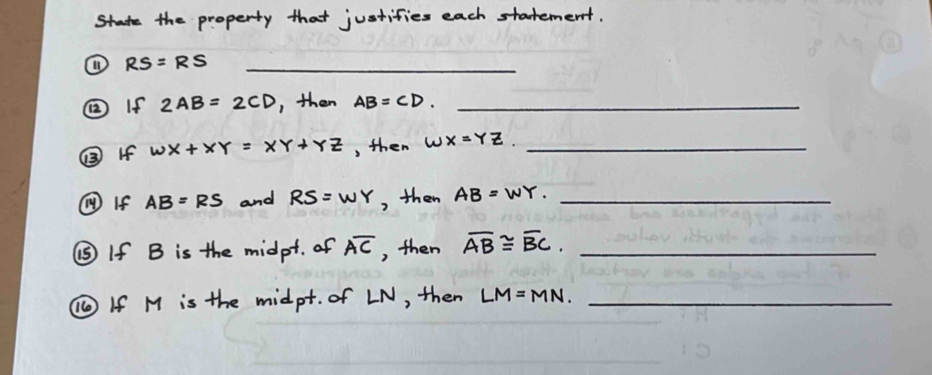 State the property that justifies each statement.
⑪ RS = RS
⑫ If 2AB = 2CD, then AB = CD.
⑬ If WX + XY = XY + YZ, then WX = YZ.
⑭ If AB = RS and RS = WY, then AB = WY.
⑮ If B is the midpt. of A̅C̅, then A̅B̅ ≅ B̅C̅.
⑯ If M is the midpt. of LN, then LM = MN.